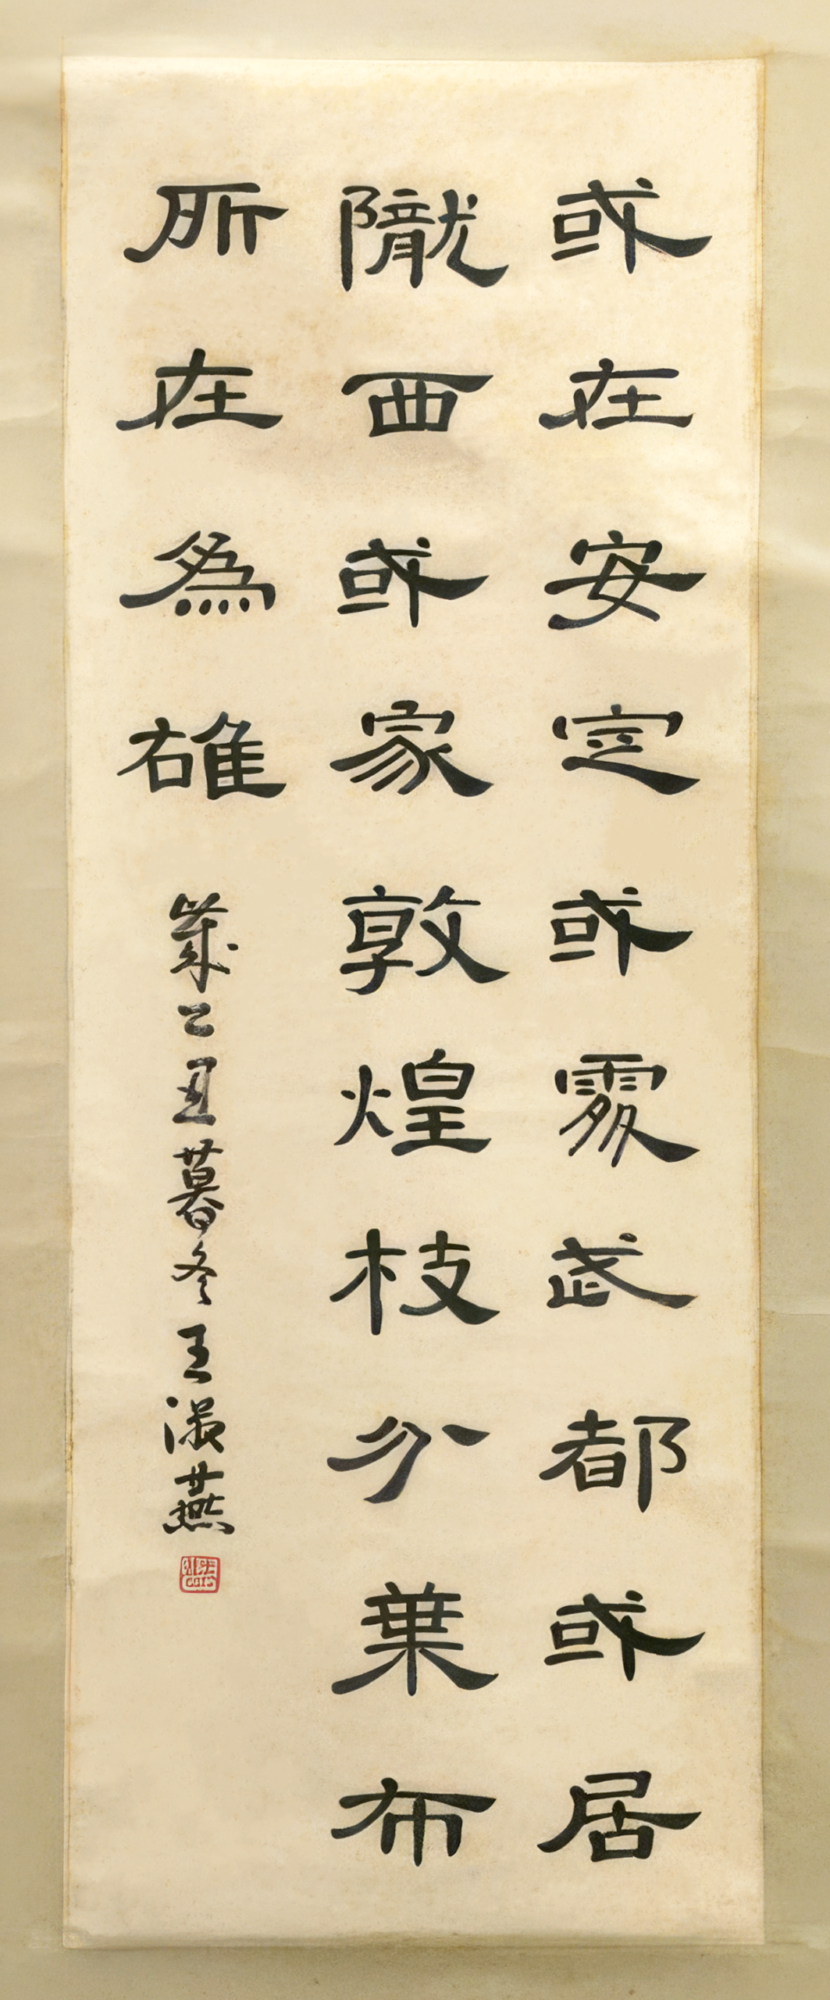 或在安定或處武都或居
隴西或家敦煌枝分葉布
所在為雄
歲乙丑暮冬王淑燕